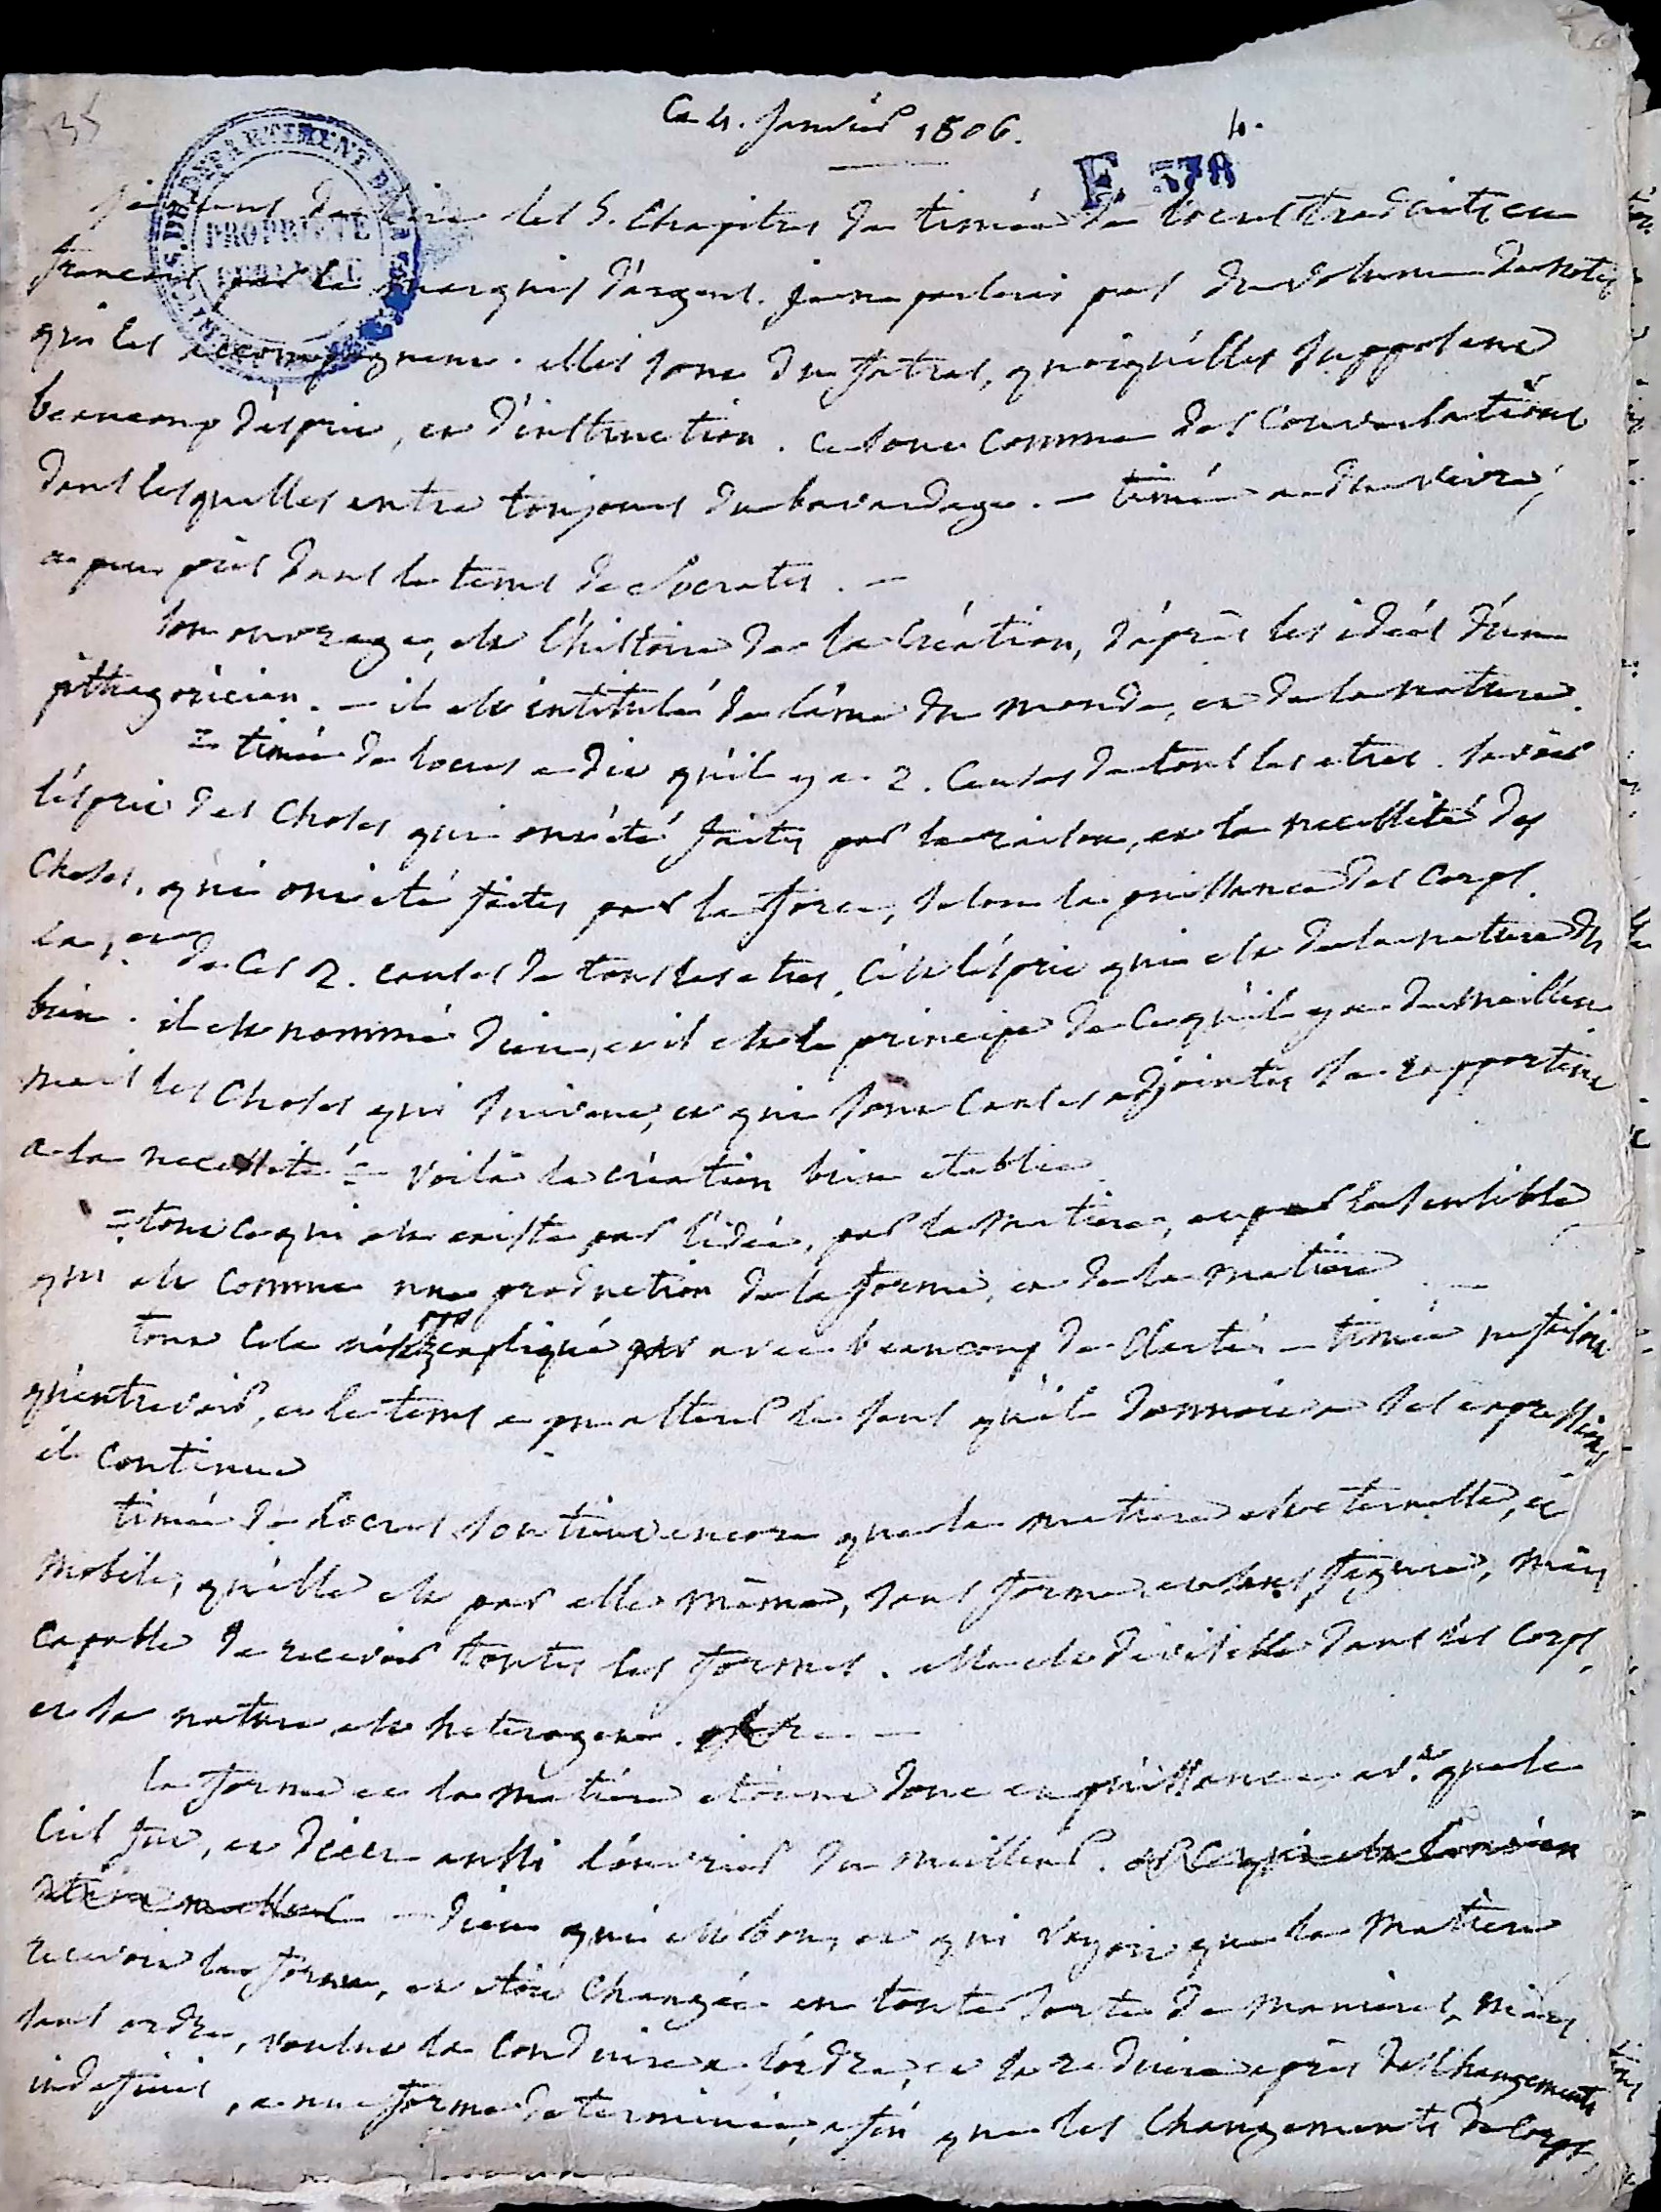 135
Ce 4. janvier 1806.
4.
E 378
ARTIMENT DE
PROPRIÉTÉ
PUBLIQUE
je viens de lire les 5. chapitres de timée de locres traduits en
francais par le marquis d'argens. je ne parlerai pas du volume de notes
qui les accompagnent. elles sont du fatras, quoiqu'elles supposent
beaucoup d'esprit, et d'instruction. ce sont comme des conversations
dans lesquelles entre toujours du bavardage. — timée a du vivre,
a peu près dans le tems de Socrates. —
son ouvrage, est l'histoire de la création, d'après les idées d'un
pithagoricien. — il est intitulé de l'ame du monde, et de la nature.
= timée de locres a dit qu'il y a 2. causes de tous les etres. savoir
l'esprit des choses qui ont été faites par la raison, et la necessité des
choses, qui ont été faites par la force, selon la puissance des corps.
la 1ere de ces 2. causes de tous les etres, c'est l'esprit qui est de la nature du
bien. il est nommé dieu, et il est le principe de ce qu'il y a de meilleur
mais les choses qui suivent, et qui sont causes adjointes se rapportent
a la necessité = voilà la création bien etablie.
= tout ce qui est existe par l'idée, par la matiere, et par le sensible
qui est comme une production de la forme, et de la matière. —
tout cela n'est pas expliqué avec beaucoup de clarté — timée ne faisoit
qu'entrevoir, et le tems a pu alterer le sens qu'il donnoit a ses expressions
il continue
timée de locres soutient encore que la matiere est eternelle, et
mobile, qu'elle est par elle même, sans forme et sans figure, mais
capable de recevoir toutes les formes. elle est divisible dans les corps,
et sa nature est heterogene. —
la forme et la matière etoient donc en puissance avt. que le
ciel fut, et dieu aussi l'ouvrier du meilleur.
— dieu qui est bon, et qui voyoit que la matiere
recevoit la forme, et etoit changée en toute sorte de manieres, mais
sans ordre, voulut la conduire a l'ordre, et la reduire après des changements
indefinis, a une forme determinée, afin que les changements de corps,